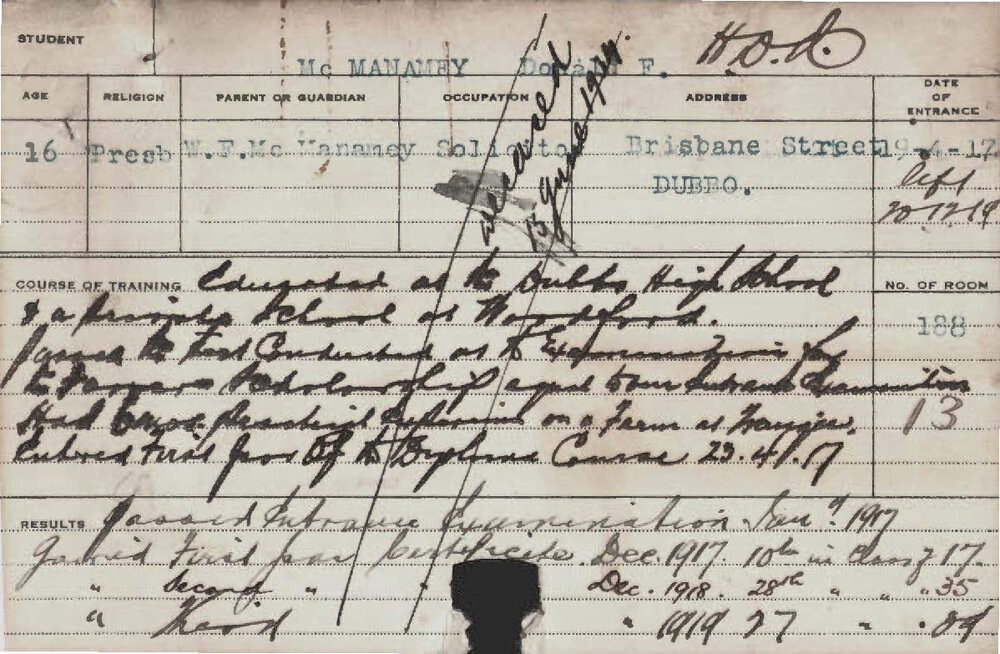 STUDENT
Mc MANAMEY Donald F. H.D.A.
AGE RELIGION PARENT OR GUARDIAN OCCUPATION ADDRESS DATE OF ENTRANCE
16 Presb W.F.Mc Manamey Solicitor Brisbane Street 19-4-17
DUBBO. left
20-12-19
13 June 1944.
COURSE OF TRAINING Educated at the Dubbo High School No. OF ROOM
& a Private School at Woodford. 188
Passed the Test Conducted at the Examination for
the Farrer Scholarship equal to our Entrance Examination
Had some Practical Experience on a Farm at 13
Entered First Year of the Diploma Course 23.4.17
RESULTS Passed Entrance Examination Jany 1917
Gained First year Certificate. Dec. 1917. 10th in Class of 17.
" Second " " Dec. 1918. 28th " " " 35
" Third " 1919 27 " " 29